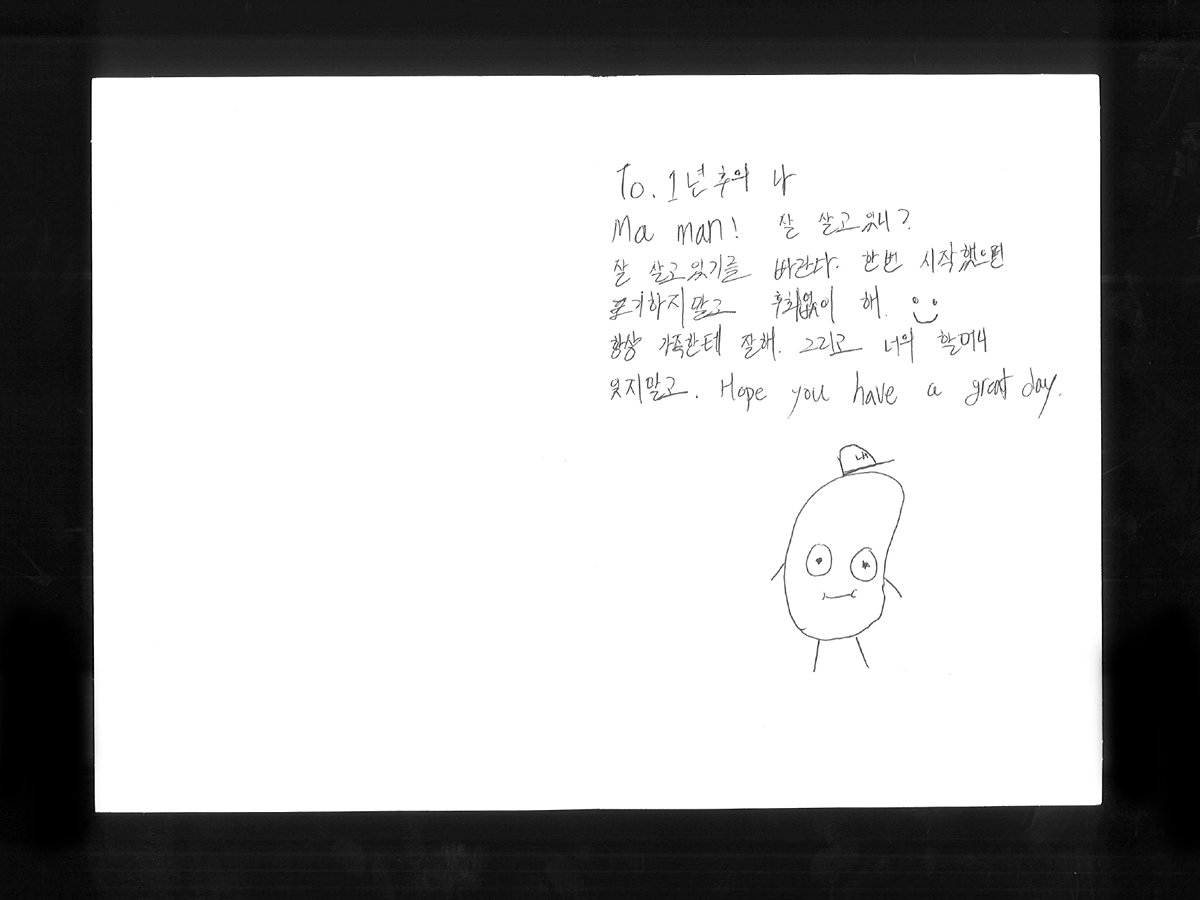 To. 1년후의 나
Ma man! 잘 살고있니?
잘 살고있기를 바란다. 한번 시작했으면
포기하지말고 후회없이 해.
항상 가족한테 잘해. 그리고 너의 할머니
잊지말고. Hope you have a great day.